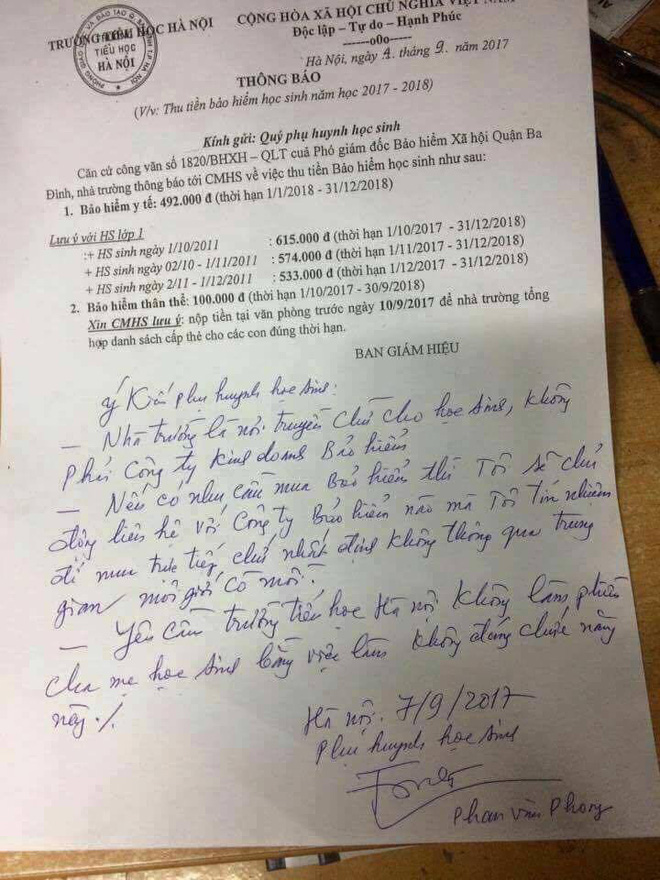 TRƯỜNG TIỂU HỌC HÀ NỘI
CỘNG HÒA XÃ HỘI CHỦ NGHĨA VIỆT NAM
Độc lập – Tự do – Hạnh Phúc
-------o0o------
TIỂU HỌC
HÀ NỘI
Hà Nội, ngày 4. tháng 9. năm 2017
THÔNG BÁO
(V/v: Thu tiền bảo hiểm học sinh năm học 2017 - 2018)
Kính gửi: Quý phụ huynh học sinh
Căn cứ công văn số 1820/BHXH – QLT cuả Phó giám đốc Bảo hiểm Xã hội Quận Ba
Đình, nhà trường thông báo tới CMHS về việc thu tiền Bảo hiểm học sinh như sau:
1. Bảo hiểm y tế: 492.000 đ (thời hạn 1/1/2018 - 31/12/2018)
Lưu ý với HS lớp 1
:+ HS sinh ngày 1/10/2011 : 615.000 đ (thời hạn 1/10/2017 - 31/12/2018)
+ HS sinh ngày 02/10 - 1/11/2011 : 574.000 đ (thời hạn 1/11/2017 - 31/12/2018)
+ HS sinh ngày 2/11 - 1/12/2011 : 533.000 đ (thời hạn 1/12/2017 - 31/12/2018)
2. Bảo hiểm thân thể: 100.000 đ (thời hạn 1/10/2017 - 30/9/2018)
Xin CMHS lưu ý: nộp tiền tại văn phòng trước ngày 10/9/2017 để nhà trường tổng
hợp danh sách cấp thẻ cho các con đúng thời hạn.
BAN GIÁM HIỆU
Ý Kiến phụ huynh học sinh:
— Nhà trường là nơi truyền chữ cho học sinh, không
phải Công ty kinh doanh Bảo hiểm
— Nếu có nhu cầu mua Bảo hiểm thì Tôi sẽ chủ
động liên hệ với Công ty Bảo hiểm nào mà Tôi tín nhiệm
để mua trực tiếp chứ nhất định không thông qua trung
gian môi giới cò mồi.
— Yêu cầu trường tiểu học Hà nội không làm phiền
cha mẹ học sinh bằng việc làm không đúng chức năng
này ./.
Hà nội. 7/9/2017
Phụ huynh học sinh
Phan Văn Phong